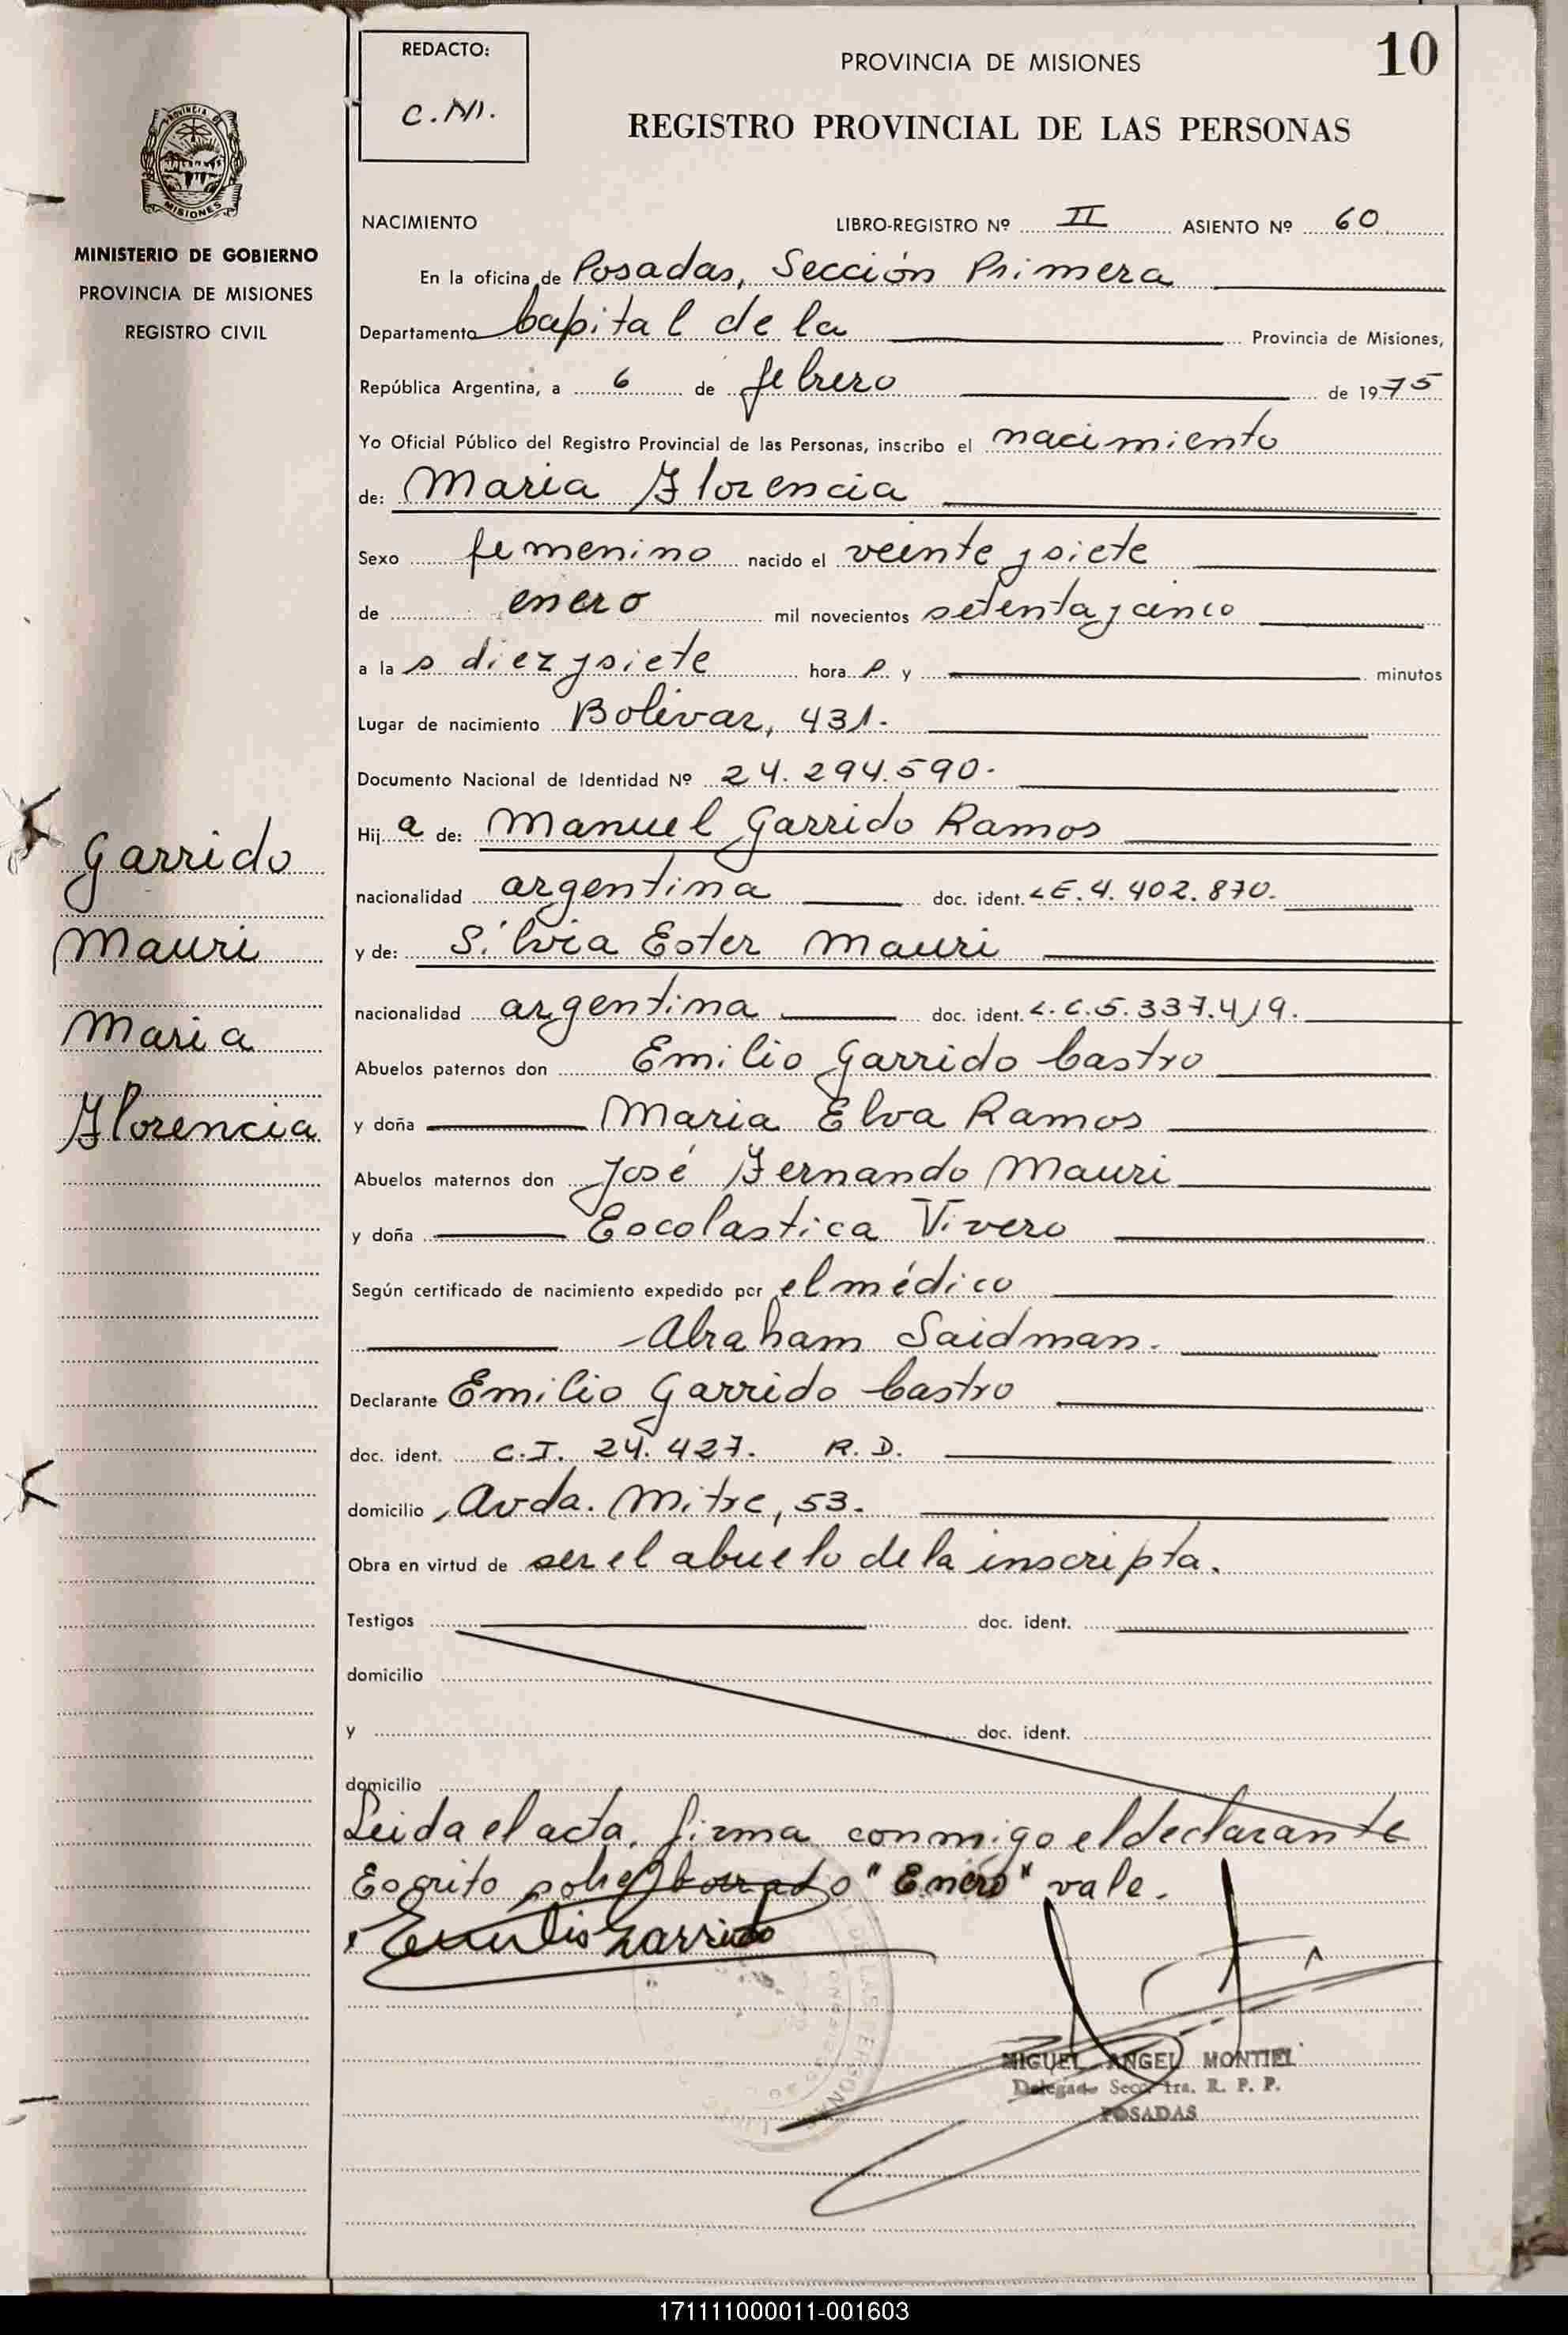 REDACTO:
C.M.
PROVINCIA DE MISIONES
10
REGISTRO PROVINCIAL DE LAS PERSONAS
PROVINCIA DE
MISIONES
MINISTERIO DE GOBIERNO
PROVINCIA DE MISIONES
REGISTRO CIVIL
NACIMIENTO LIBRO-REGISTRO Nº II ASIENTO Nº 60
En la oficina de Posadas, Sección Primera
Departamento Capital de la Provincia de Misiones,
República Argentina, a 6 de febrero de 1975
Yo Oficial Público del Registro Provincial de las Personas, inscribo el nacimiento
de: Maria Florencia
Sexo femenino nacido el veinte y siete
de enero mil novecientos setenta y cinco
a las diez y siete hora P. y minutos
Lugar de nacimiento Bolívar, 431.
Documento Nacional de Identidad Nº 24.294.590.
Hija de: Manuel Garrido Ramos
nacionalidad argentina doc. ident. L.E. 4.402.870.
y de: Silvia Ester Mauri
nacionalidad argentina doc. ident. L.C. 5.337.419.
Abuelos paternos don Emilio Garrido Castro
y doña Maria Elva Ramos
Abuelos maternos don José Fernando Mauri
y doña Escolastica Vivero
Según certificado de nacimiento expedido por el médico
Abraham Saidman.
Declarante Emilio Garrido Castro
doc. ident. C.I. 24.427. R.D.
domicilio Avda. Mitre, 53.
Obra en virtud de ser el abuelo de la inscripta.
Testigos doc. ident.
domicilio
y doc. ident.
domicilio
Leida el acta, firma conmigo el declarante
Escrito sobre borrado "Enero" vale.
Emilio Garrido
MIGUEL ANGEL MONTIEL
Delegado Secc. 1ra. R. P. P.
POSADAS
Garrido
Mauri
Maria
Florencia
171111000011-001603